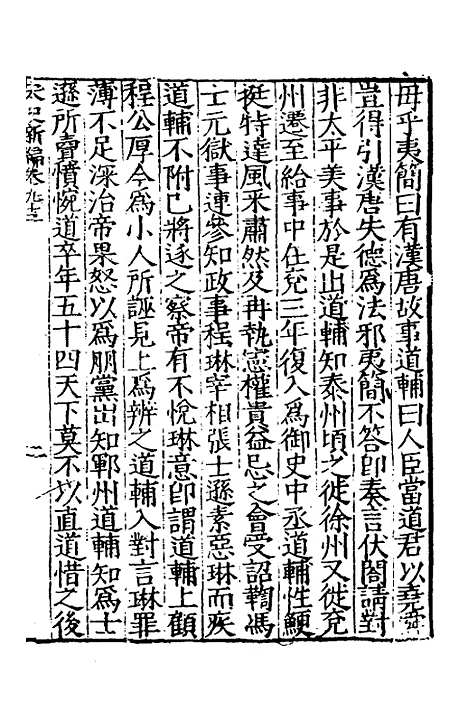 毋乎夷簡曰有漢唐故事道輔曰人臣當道君以堯舜
豈得引漢唐失德爲法邪夷簡不答即奏言伏閤請對
非太平美事於是出道輔知泰州頃之徙徐州又徙兖
州遷至給事中在兖三年復入爲御史中丞道輔性鯁
挺特達風采肅然及再執憲權貴益忌之會受詔鞫馮
士元獄事連參知政事程琳宰相張士遜素惡琳而疾
道輔不附己將逐之察帝有不悅琳意即謂道輔上顧
程公厚今爲小人所誣見上爲辨之道輔入對言琳罪
薄不足深治帝果怒以爲朋黨出知鄆州道輔知爲士
遜所賣憤惋道卒年五十四天下莫不以直道惜之後
宋史新編卷九十三
二